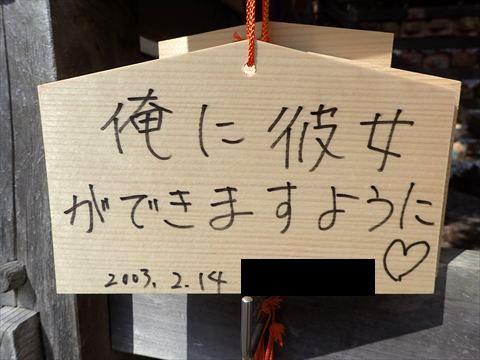 俺に彼女
ができますように
2003. 2. 14 ♡